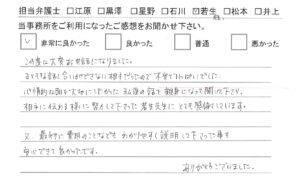 担当弁護士 □江原 □黒澤 □星野 □石川 ☑若生 □松本 □井上
当事務所をご利用になったご感想をお聞かせ下さい。
☑ 非常に良かった □ 良かった □ 普通 □ 悪かった
この度は大変お世話になりました。
まともな話し合いができない相手だったので不安でいっぱいでした。
私の話を親身になって聞いて下さり、
相手に伝える様に努力して下さった若生先生にとても感謝しています。
又、最初に費用のことなども わかりやすく説明して下さった事も
安心できて良かったです。
ありがとうございました。